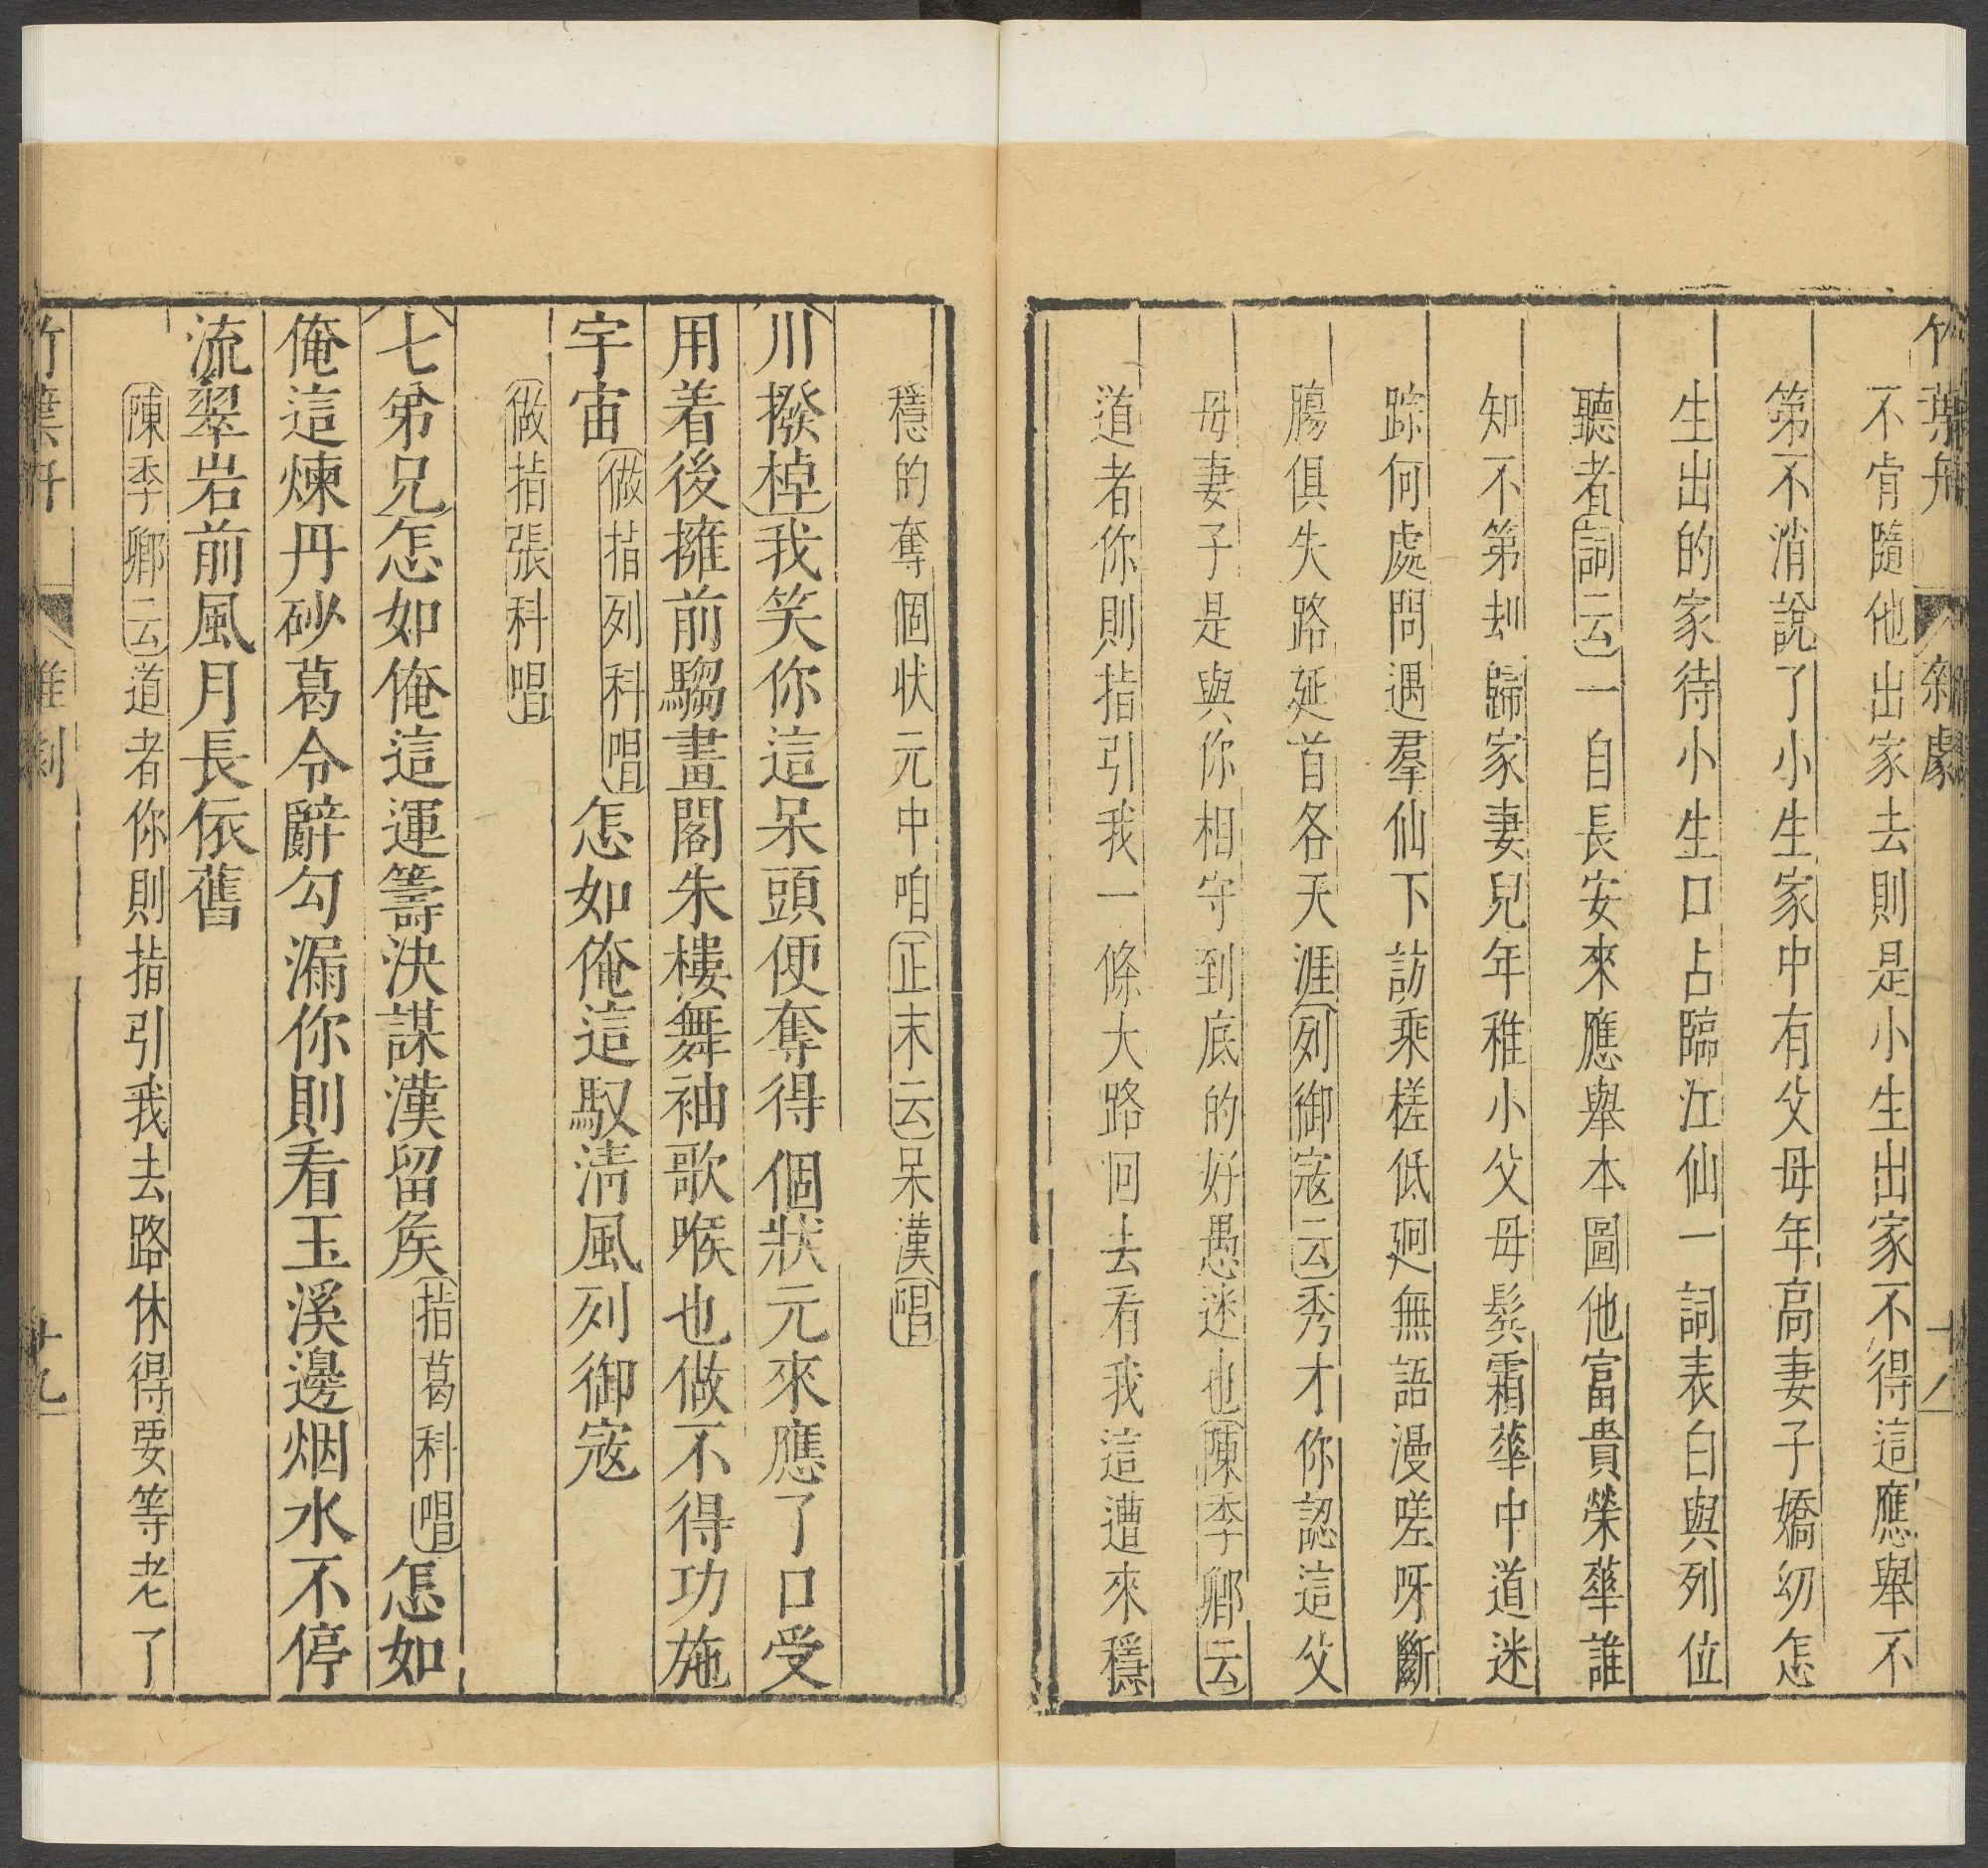 竹葉舟 雜劇 十八
不肯隨他出家去則是小生出家不得這應舉不
第不消說了小生家中有父母年高妻子嬌幼怎
生出的家待小生口占臨江仙一詞表白與列位
聽者詞云一自長安來應舉本圖他富貴榮華誰
知不第刬歸家妻兒年稚小父母鬂霜華中道迷
踪何處問遇羣仙下訪乘槎低廻無語漫嗟呀斷
腸俱失路延首各天涯列御寇云秀才你認這父
母妻子是與你相守到底的好愚迷也陳季卿云
道者你則指引我一條大路回去看我這遭來穩
穩的奪個狀元中咱正末云呆漢唱
川撥棹我笑你這呆頭便奪得個狀元來應了口受
用着後擁前騶畫閣朱樓舞袖歌喉也做不得功施
宇宙做指列科唱怎如俺這馭清風列御寇
做指張科唱
七弟兄怎如俺這運籌決謀漢留矦指葛科唱怎如
俺這煉丹砂葛令辭勾漏你則看玉溪邊烟水不停
流翠岩前風月長依舊
陳季卿云道者你則指引我去路休得要等老了
竹葉舟 雜劇 十九